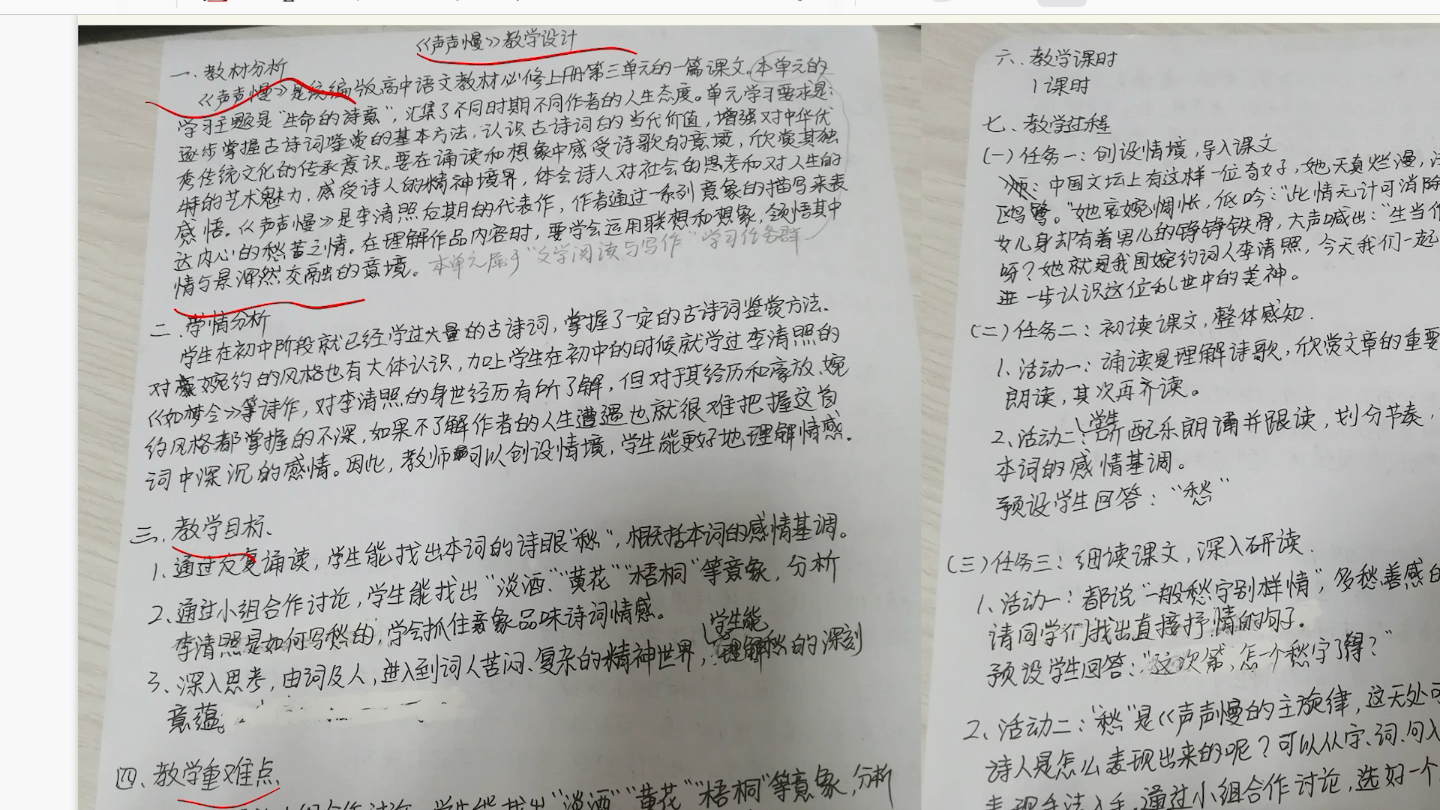 《声声慢》教学设计
一、教材分析
《声声慢》是统编版高中语文教材必修上册第三单元的一篇课文。本单元的
学习主题是“生命的诗意”,汇集了不同时期不同作者的人生态度。单元学习要求是:
逐步掌握古诗词鉴赏的基本方法,认识古诗词的当代价值,增强对中华优
秀传统文化的传承意识。要在诵读和想象中感受诗歌的意境,欣赏其独
特的艺术魅力,感受诗人的精神境界,体会诗人对社会的思考和对人生的
感悟。《声声慢》是李清照后期的代表作,作者通过一系列意象的描写来表
达内心的愁苦之情。在理解作品内容时,要学会运用联想和想象,领悟其中
情与景浑然交融出的意境。本单元属于“文学阅读与写作”学习任务群
二、学情分析
学生在初中阶段就已经学过大量的古诗词,掌握了一定的古诗词鉴赏方法。
对豪婉约的风格也有大体认识,加上学生在初中的时候就学过李清照的
《如梦令》等诗作,对李清照的身世经历有所了解,但对于其经历和豪放、婉
约风格都掌握的不深,如果不了解作者的人生遭遇也就很难把握这首
词中深沉的感情。因此,教师可以创设情境,学生能更好地理解情感。
三、教学目标、
1、通过反复诵读,学生能找出本词的诗眼“愁”,概括本词的感情基调。
2、通过小组合作讨论,学生能找出“淡酒”“黄花”“梧桐”等意象,分析
李清照是如何写愁的,学会抓住意象品味诗词情感。
3、深入思考,由词及人,进入到词人苦闷、复杂的精神世界,学生能理解愁的深刻
意蕴。
四、教学重难点
小组合作讨论,学生能找出“淡酒”“黄花”“梧桐”等意象,分析
六、教学课时
1课时
七、教学过程
(一)任务一:创设情境,导入课文
师:中国文坛上有这样一位奇女子,她天真烂漫,
鸥鹭。”她哀婉惆怅,低吟:“此情无计可消除
女儿身却有着男儿的铮铮铁骨,大声喊出:“生当作
呀?她就是我国婉约词人李清照,今天我们一起
进一步认识这位乱世中的美神。
(二)任务二:初读课文,整体感知.
1、活动一:诵读是理解诗歌,欣赏文章的重要
朗读,其次再齐读。
2、活动二:学生听配乐朗诵并跟读,划分节奏,
本词的感情基调。
预设学生回答:“愁”
(三)任务三:细读课文,深入研读.
1、活动一:都说“一般愁字别样情”,多愁善感的
请同学们找出直接抒情的句子。
预设学生回答:“这次第,怎一个愁字了得?”
2、活动二:“愁”是《声声慢的主旋律,这无处可
诗人是怎么表现出来的呢?可以从字、词、句入
表现手法入手,通过小组合作讨论,选好一个